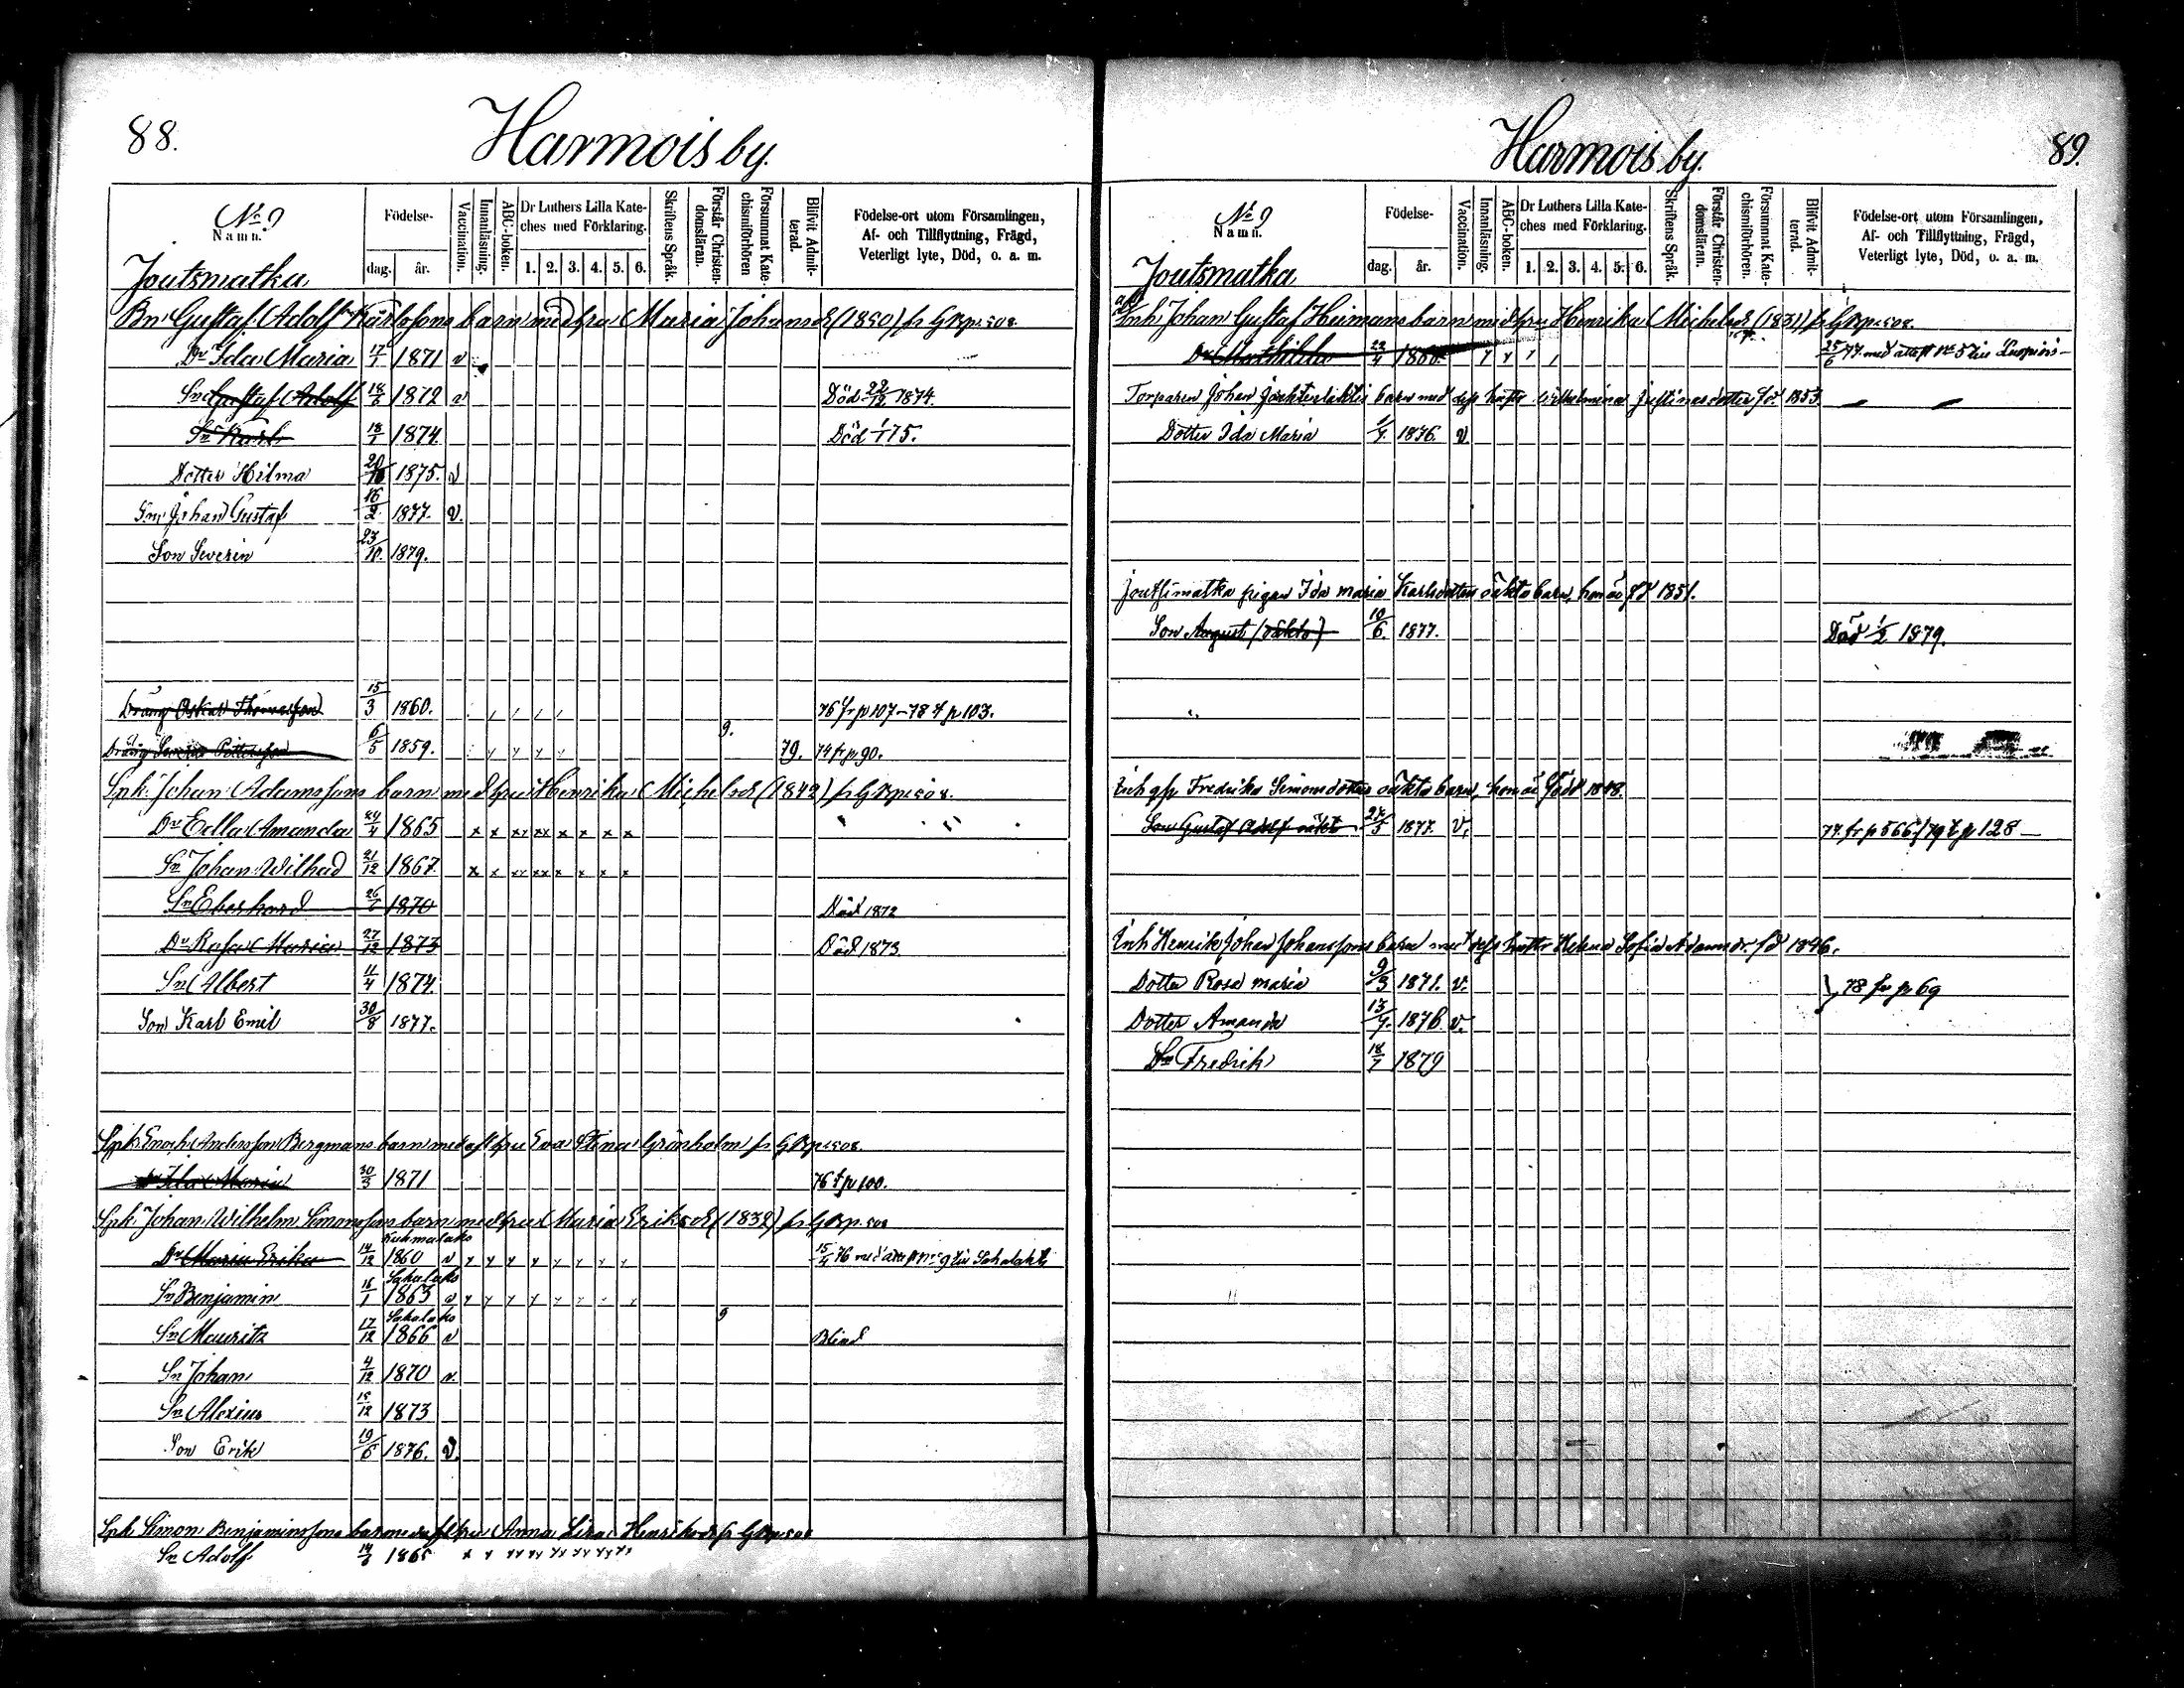 88.
Harmois by.
No 9
Namn.
Födelse-
dag.
år.
Vaccination.
Innanläsning.
ABC-boken.
Dr Luthers Lilla Kate-
ches med Förklaring.
1. 2. 3. 4. 5. 6.
Skriftens Språk.
Förstår Christen-
domsläran.
Försummat Kate-
chismiförhören
Blifvit Admit-
terad.
Födelse-ort utom Församlingen,
Af- och Tillflyttning, Frägd,
Veterligt lyte, Död, o. a. m.
Joutsmatka
Bn Gustaf Adolf Karlssons barn med hru Maria Johansdr (1850) fr GBp. 508.
Dr Ida Maria 17/1 1871 v
Sn Gustaf Adolf 18/6 1872 v Död 22/12 1874.
Sn Karl 18/1 1874 Död 1/1 75.
Dotter Hilma 20/10 1875. v
Sn Johan Gustaf 16/2 1877. v.
Son Severin 23/10. 1879.
Dräng Oskar Thomasson 15/3 1860. 76 fr p 107 – 78 t p 103.
9.
Dräng Pettersson 6/5 1859. 79. 74 fr p 90.
Spk. Johan Adamssons barn med hru Henrika Michelsdr (1842) fr GBp. 508.
Dr Edla Amanda 24/4 1865 x x xx xx x x x x
Sn Johan Wilhad 21/12 1867. x x xx xx x x x x
Sn Eberhard 26/6 1870 Död 1872
Dr Rosa Maria 27/12 1873 Död 1873.
Sn Albert 11/4 1874.
Son Karl Emil 30/8 1877.
Spk. Enoch Anderssons Bergmans barn med aft hru Eva Stina Grönholm fr GBp. 508.
Dr Ida Maria 30/3 1871 76 t p 100.
Spk. Johan Wilhelm Simonssons barn med hru Maria Eriksdr (1832) fr GBp. 508
Kuhmalaks
Dr Maria Erika 14/12 1860 v 15/4 76 med attest No 9 till Sahalaks
Sahalaks
Sn Benjamin 16/1 1863 v
Sahalaks
Sn Mauritz 17/12 1866 v 9 Blind
Sn Johan 4/12 1870 v.
Sn Alexius 15/12 1873
Son Erik 19/6 1876. v.
Spk Simon Benjaminssons barn med aft hru Anna Lisa Henriksdr fr GBp. 508
Sn Adolf 14/6 1865
Harmois by.
89.
No 9
Namn.
Födelse-
dag.
år.
Vaccination.
Innanläsning.
ABC-boken.
Dr Luthers Lilla Kate-
ches med Förklaring.
1. 2. 3. 4. 5. 6.
Skriftens Språk.
Förstår Christen-
domsläran.
Försummat Kate-
chismiförhören.
Blifvit Admit-
terad.
Födelse-ort utom Församlingen,
Af- och Tillflyttning, Frägd,
Veterligt lyte, Död, o. a. m.
Joutsmatka
Inh Johan Gustaf Heimans barn med hru Henrika Michelsdr (1831) fr GBp. 508.
Dr Mathilda 22/4 1860. 25/6 77 med attest No 5 till
Torparen Johan barn med dess hustru Wilhelmina Justinasdotter född 1853.
Dotter Ida Maria 1876. v
Joutsimatka pigan Ida Maria Karlsdotters oäkta barn, hon är fd 1851.
Son August (oäkta) 10/6. 1877. Död 1/2 1879.
Inh qp Fredrika Simonsdotters oäkta barn, hon är född 1848.
Son Gustaf Adolf oäkta 27/5 1877. v. 77 fr p 566 / 79 t p 128 –
Inh Henrik Johan Johanssons barn med dess hustru Helena Sofia Adamsdr fd 1846.
Dotter Rosa Maria 9/3 1871. v. } 78 fr p 69
Dotter Amanda 13/7. 1876. v.
Sn Fredrik 18/7 1879